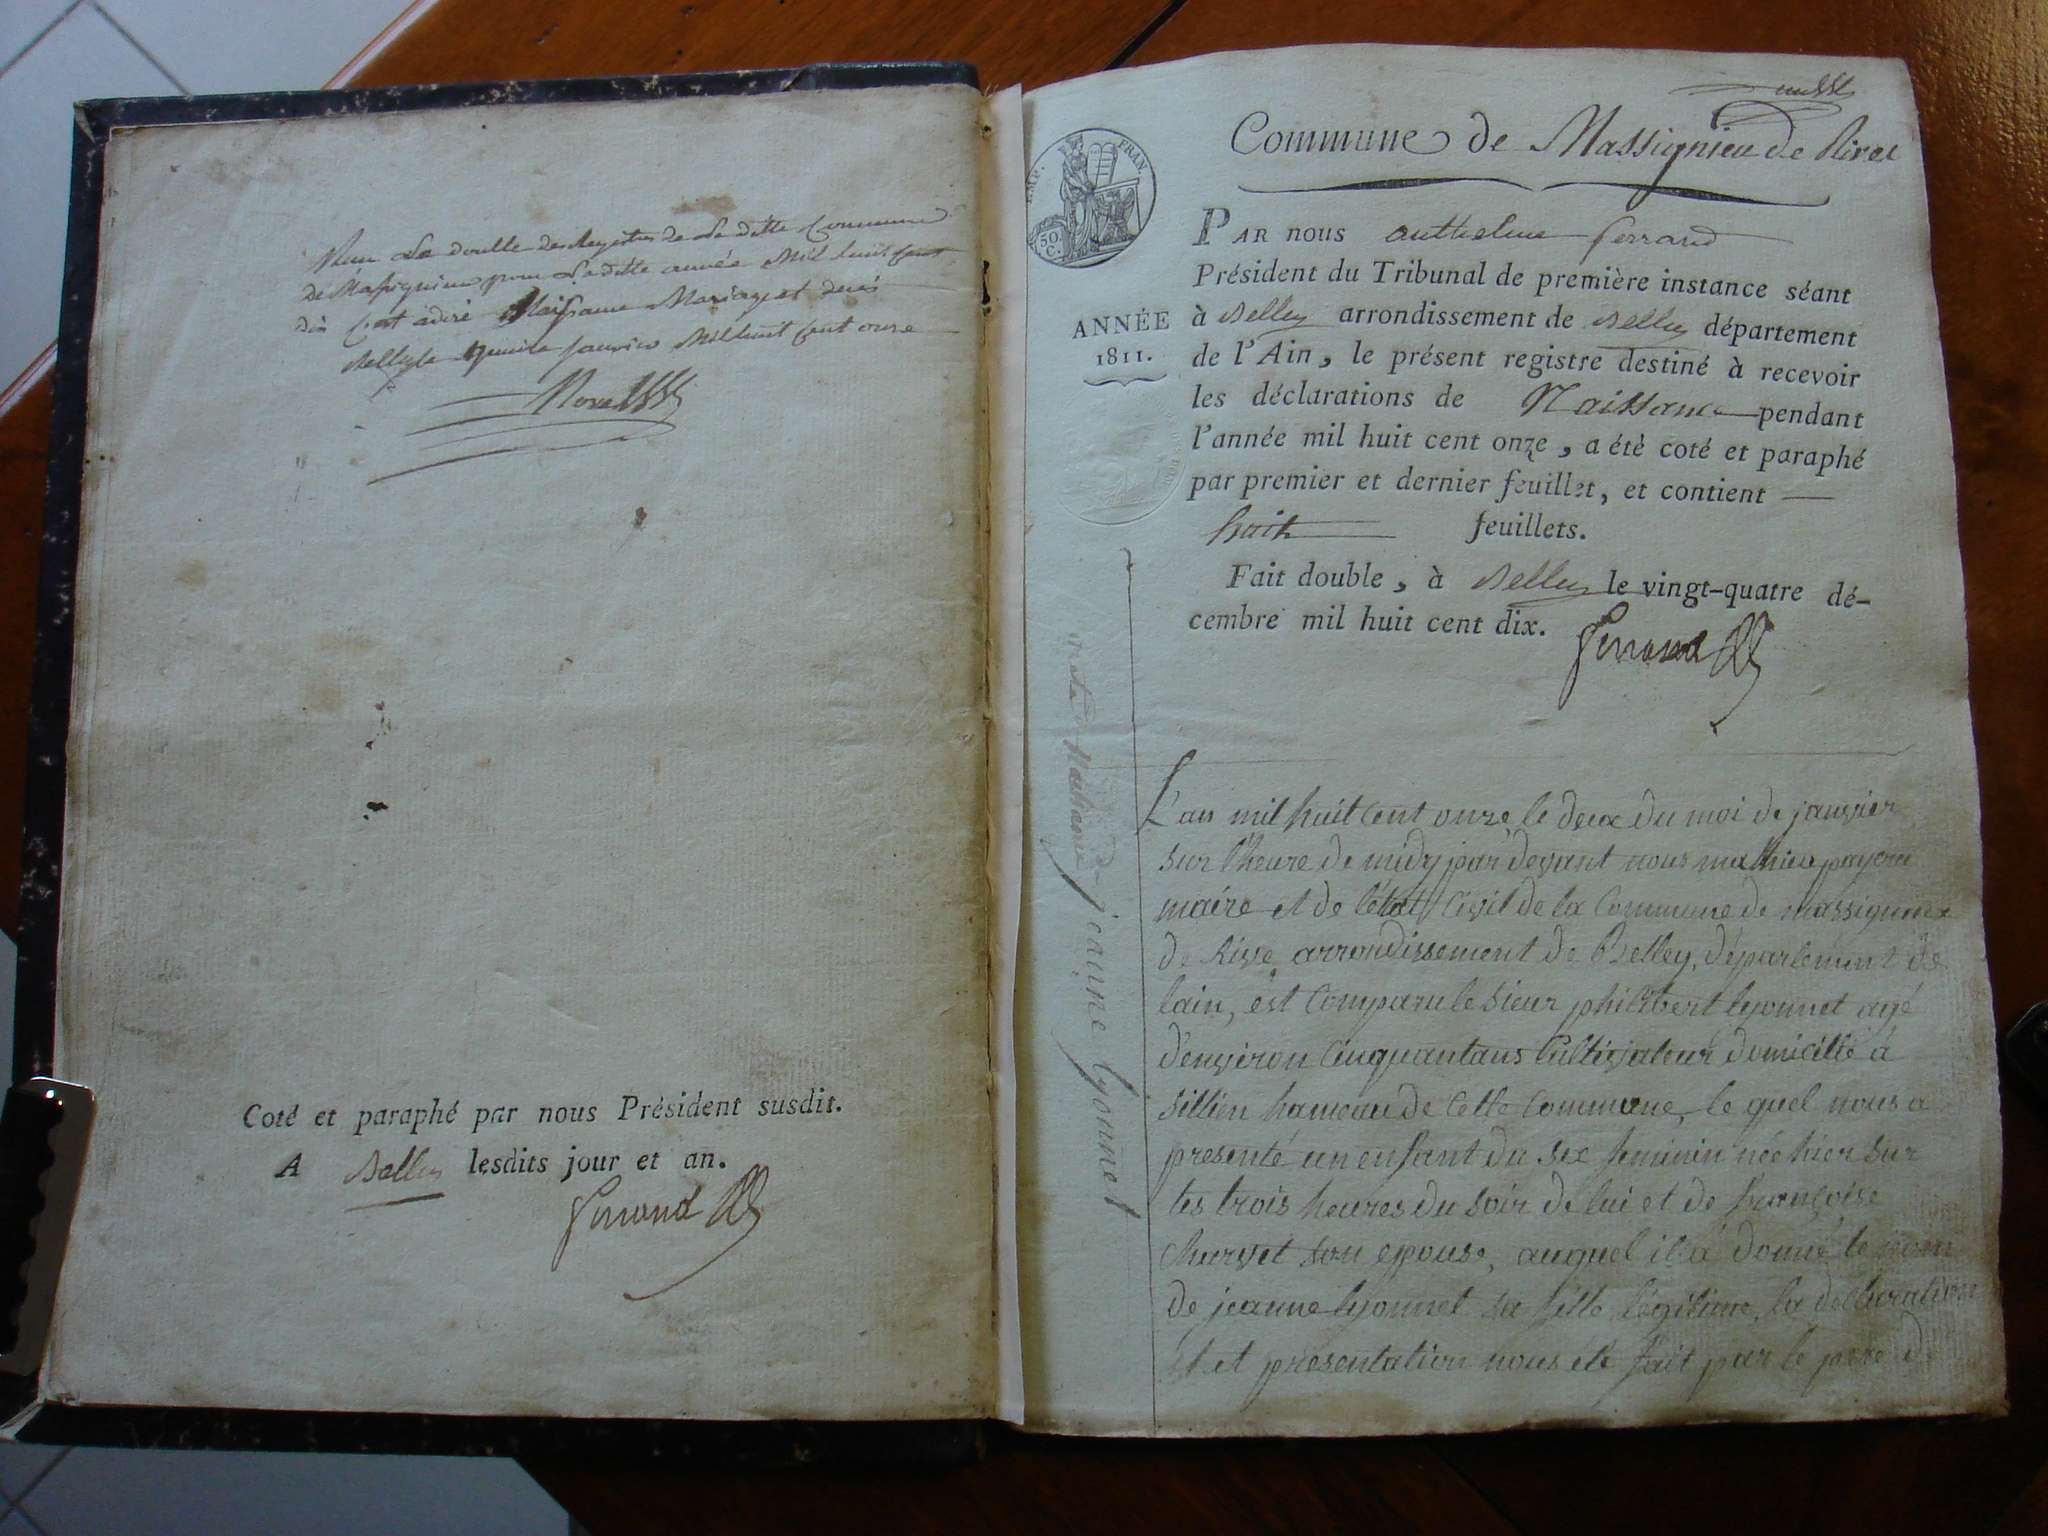 Reçu Le double des Registres de La ditte Commune
de Massignieu pour Laditte année Mil huit Cent
dix C'est adire Naissance Mariage et decès
Belley le quinze janvier Mil huit Cent onze
Coté et paraphé par nous Président susdit.
A Belley lesdits jour et an.
Ferrand
Commune de Massignieu de Rives
EMP. FRAN.
50 C.
ANNÉE
1811.
PAR NOUS anthelme ferrand
Président du Tribunal de première instance séant
à Belley arrondissement de Belley département
de l'Ain, le présent registre destiné à recevoir
les déclarations de Naissance pendant
l'année mil huit cent onze, a été coté et paraphé
par premier et dernier feuillet, et contient —
huit feuillets.
Fait double, à Belley le vingt-quatre dé-
cembre mil huit cent dix.
Ferrand
acte de Naissance de jeanne lyonnet
L'an mil huit cent onze le deux du moi de janvier
sur l'heure de midy par devant nous mathieu payen
maire et de l'état Civil de la Commune de massignieu
de Rive arrondissement de Belley, département de
lain, est Comparu le sieur philibert lyonnet agé
d'environ Cinquantans Cultivateur domicilié à
sillien hameau de Cette Commune, le quel nous a
presenté un enfant du sex feminin née hier sur
les trois heures du soir de lui et de françoise
Charvet son epouse, auquel il a donné le nom
de jeanne lyonnet sa fille légitime, la declaration
et presentation nous été fait par le pere de